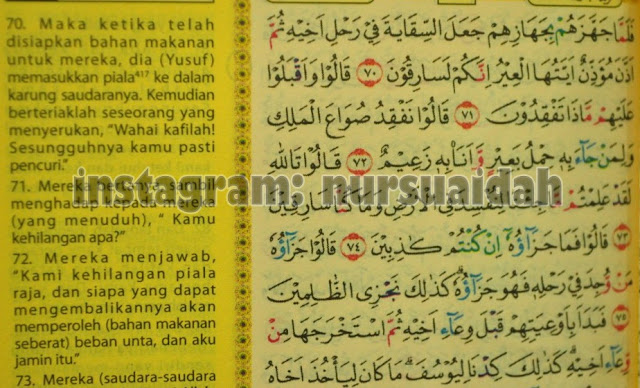 70. Maka ketika telah
disiapkan bahan makanan
untuk mereka, dia (Yusuf)
memasukkan piala⁴¹⁷ ke dalam
karung saudaranya. Kemudian
berteriaklah seseorang yang
menyerukan, "Wahai kafilah!
Sesungguhnya kamu pasti
pencuri."
71. Mereka bertanya sambil
menghadap kepada mereka
(yang menuduh), " Kamu
kehilangan apa?"
72. Mereka menjawab,
"Kami kehilangan piala
raja, dan siapa yang dapat
mengembalikannya akan
memperoleh (bahan makanan
seberat) beban unta, dan aku
jamin itu."
73. Mereka (saudara-saudara
فَلَمَّا جَهَّزَهُمْ بِجَهَازِهِمْ جَعَلَ السِّقَايَةَ فِيْ رَحْلِ اَخِيْهِ ثُمَّ
اَذَّنَ مُؤَذِّنٌ اَيَّتُهَا الْعِيْرُ اِنَّكُمْ لَسَارِقُوْنَ ٧٠ قَالُوْا وَاَقْبَلُوْا
عَلَيْهِمْ مَّاذَا تَفْقِدُوْنَ ٧١ قَالُوْا نَفْقِدُ صُوَاعَ الْمَلِكِ
وَلِمَنْ جَاۤءَ بِهٖ حِمْلُ بَعِيْرٍ وَّاَنَا۠ بِهٖ زَعِيْمٌ ٧٢ قَالُوْا تَاللّٰهِ
لَقَدْ عَلِمْتُمْ مَّا جِئْنَا لِنُفْسِدَ فِى الْاَرْضِ وَمَا كُنَّا سَارِقِيْنَ
٧٣ قَالُوْا فَمَا جَزَاۤؤُهٗٓ اِنْ كُنْتُمْ كٰذِبِيْنَ ٧٤ قَالُوْا جَزَاۤؤُهٗ
مَنْ وُّجِدَ فِيْ رَحْلِهٖ فَهُوَ جَزَاۤؤُهٗ كَذٰلِكَ نَجْزِى الظّٰلِمِيْنَ
٧٥ فَبَدَاَ بِاَوْعِيَتِهِمْ قَبْلَ وِعَاۤءِ اَخِيْهِ ثُمَّ اسْتَخْرَجَهَا مِنْ
وِّعَاۤءِ اَخِيْهِ كَذٰلِكَ كِدْنَا لِيُوْسُفَ مَا كَانَ لِيَأْخُذَ اَخَاهُ
instagram: nursuaidah